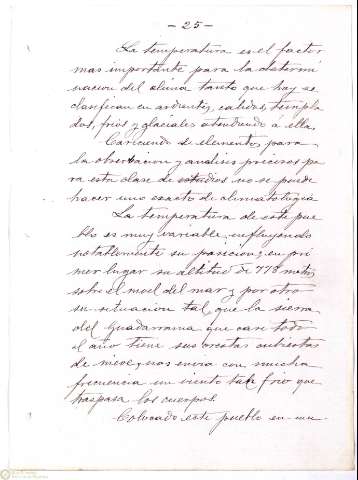 - 25 -
La temperatura es el factor
mas importante para la determi
nacion del clima tanto que hoy se
clasifican en ardientes, calidos, templa
dos, frios y glaciales atendiendo á ella.
Careciendo de elementos para
la observacion y analisis precisos pa
ra esta clase de estudios no se puede
hacer uno exacto de climatologia
La temperatura de este pue
blo es muy variable, influyendo
notablemente su posicion; en pri
mer lugar su altitud de 778 mts,
sobre el nivel del mar y por otro
su situacion tal que la sierra
del Guadarrama que casi todo
el año tiene sus crestas cubiertas
de nieve, nos envia con mucha
frecuencia un viento tan frio que
traspasa los cuerpos.
Colocado este pueblo en una